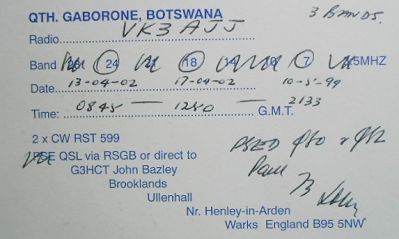 QTH. GABORONE, BOTSWANA
3 BANDS.
Radio VK3AJJ
Band 24 18 7 MHZ
Date 13-04-02 17-04-02 10-5-99
Time: 0845 — 1250 — 2133 G.M.T.
2 x CW RST 599
QSL via RSGB or direct to
G3HCT John Bazley
Brooklands
Ullenhall
Nr. Henley-in-Arden
Warks England B95 5NW